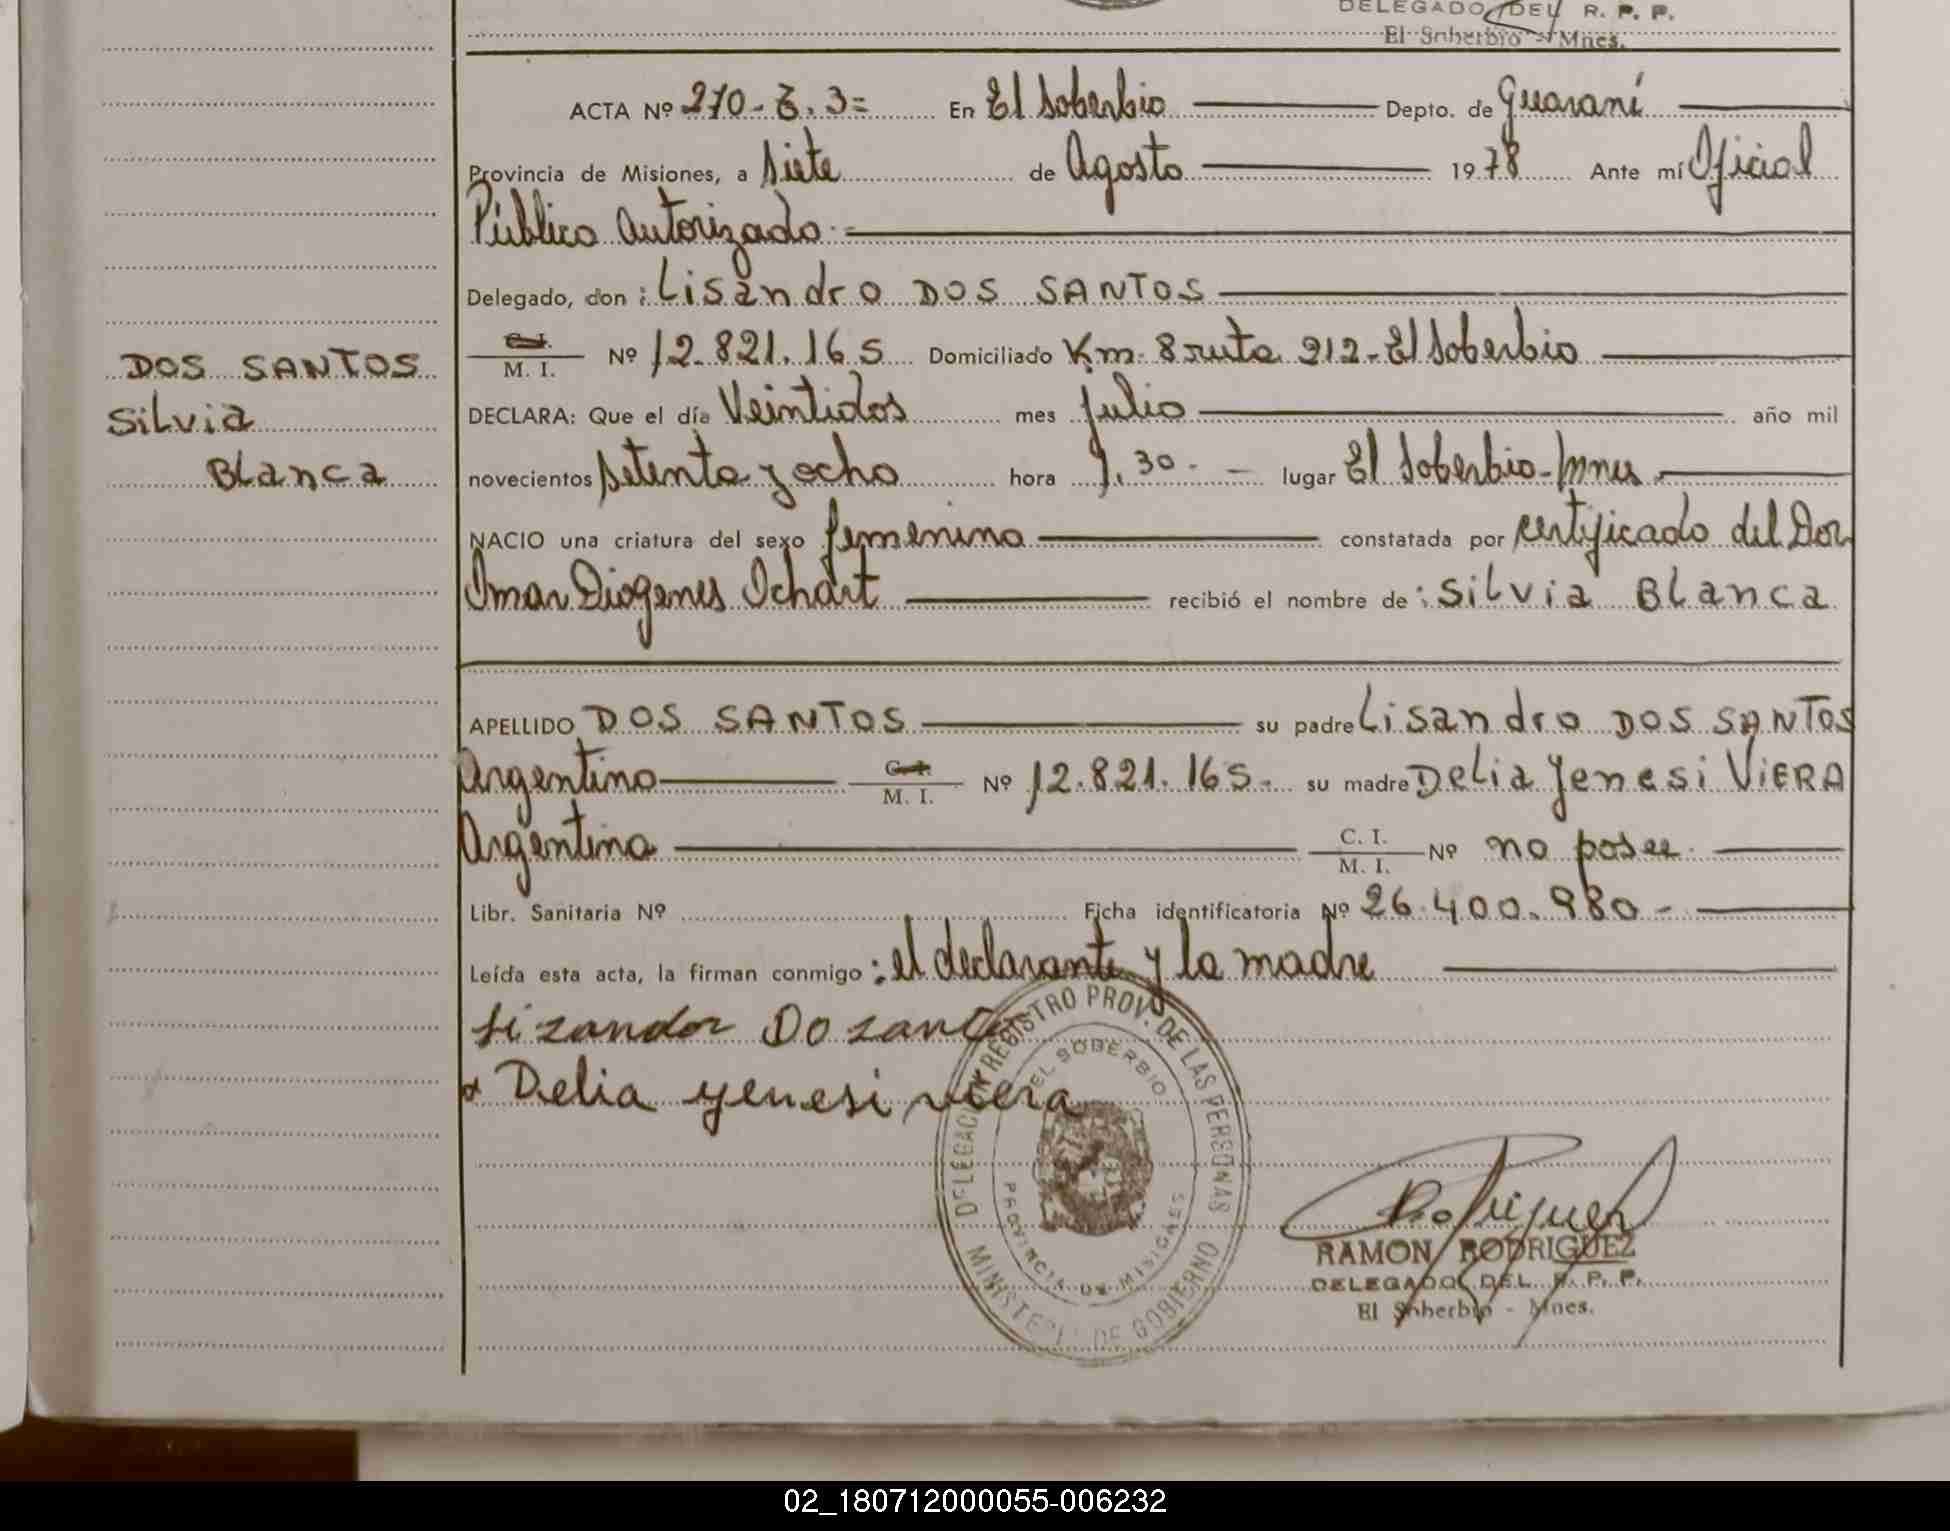 DELEGADO DEL R. P. P.
El Soberbio - Mnes.
ACTA Nº 270 - T. 3= En El Soberbio Depto. de Guaraní
Provincia de Misiones, a Siete de Agosto 1978 Ante mí Oficial
Público Autorizado.
Delegado, don : Lisandro DOS SANTOS
C. I.
M. I. Nº 12.821.165 Domiciliado Km. 8 ruta 212 - El Soberbio
DOS SANTOS
Silvia
Blanca
DECLARA: Que el día Veintidos mes Julio año mil
novecientos setenta y ocho hora 9.30 - lugar El Soberbio - Mnes
NACIO una criatura del sexo femenino constatada por certificado del Dor
Omar Diogenes Ochart recibió el nombre de : Silvia Blanca
APELLIDO DOS SANTOS su padre Lisandro DOS SANTOS
Argentino C. I.
M. I. Nº 12.821.165. su madre Delia Yenesi VIERA
Argentina C. I.
M. I. Nº no posee.
Libr. Sanitaria Nº Ficha identificatoria Nº 26.400.980 -
Leída esta acta, la firman conmigo : el declarante y la madre
Lizandor Do zanto
x Delia yenesi viera
DELEGACION REGISTRO PROV. DE LAS PERSONAS
EL SOBERBIO
PROVINCIA DE MISIONES
MINISTERIO DE GOBIERNO
Rodriguez
RAMON RODRIGUEZ
DELEGADO DEL R. P. P.
El Soberbio - Mnes.
02_180712000055-006232